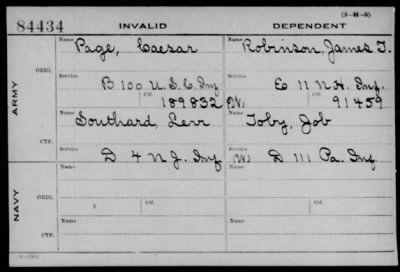 (3-H-5)
84434 INVALID DEPENDENT
Name Page, Caesar Name Robinson, James T.
ORIG.
Service B 100 U.S.C. Inf Service E 11 N.H. Inf.
Ctf. 189832 (W) Ctf. 91459
ARMY
Name Southard, Levi Name Toby, Job
CTF.
Service D 4 N.J. Inf Service (W) D 111 Pa. Inf.
Name Name
ORIG.
Ctf. Ctf.
NAVY
Name Name
CTF.